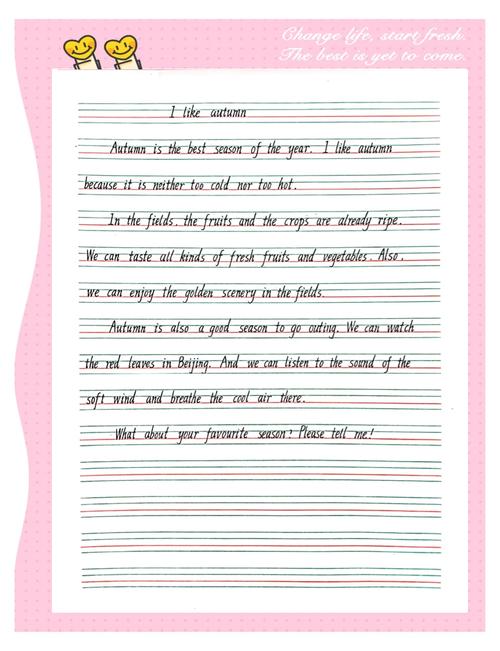 Change life, start fresh.
The best is yet to come.
I like autumn
Autumn is the best season of the year. I like autumn
because it is neither too cold nor too hot.
In the fields, the fruits and the crops are already ripe.
We can taste all kinds of fresh fruits and vegetables. Also,
we can enjoy the golden scenery in the fields.
Autumn is also a good season to go outing. We can watch
the red leaves in Beijing. And we can listen to the sound of the
soft wind and breathe the cool air there.
What about your favourite season? Please tell me!